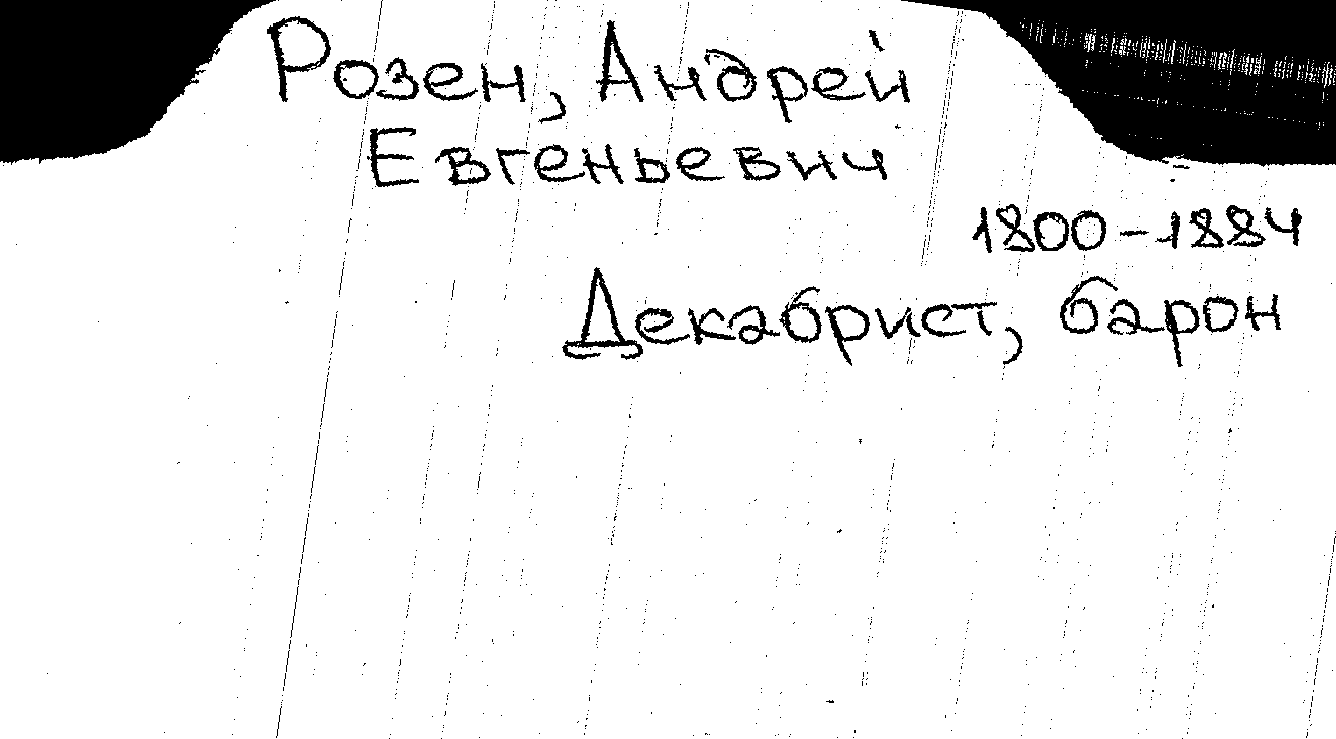 Розен, Андрей
Евгеньевич
1800-1884
Декабрист, барон